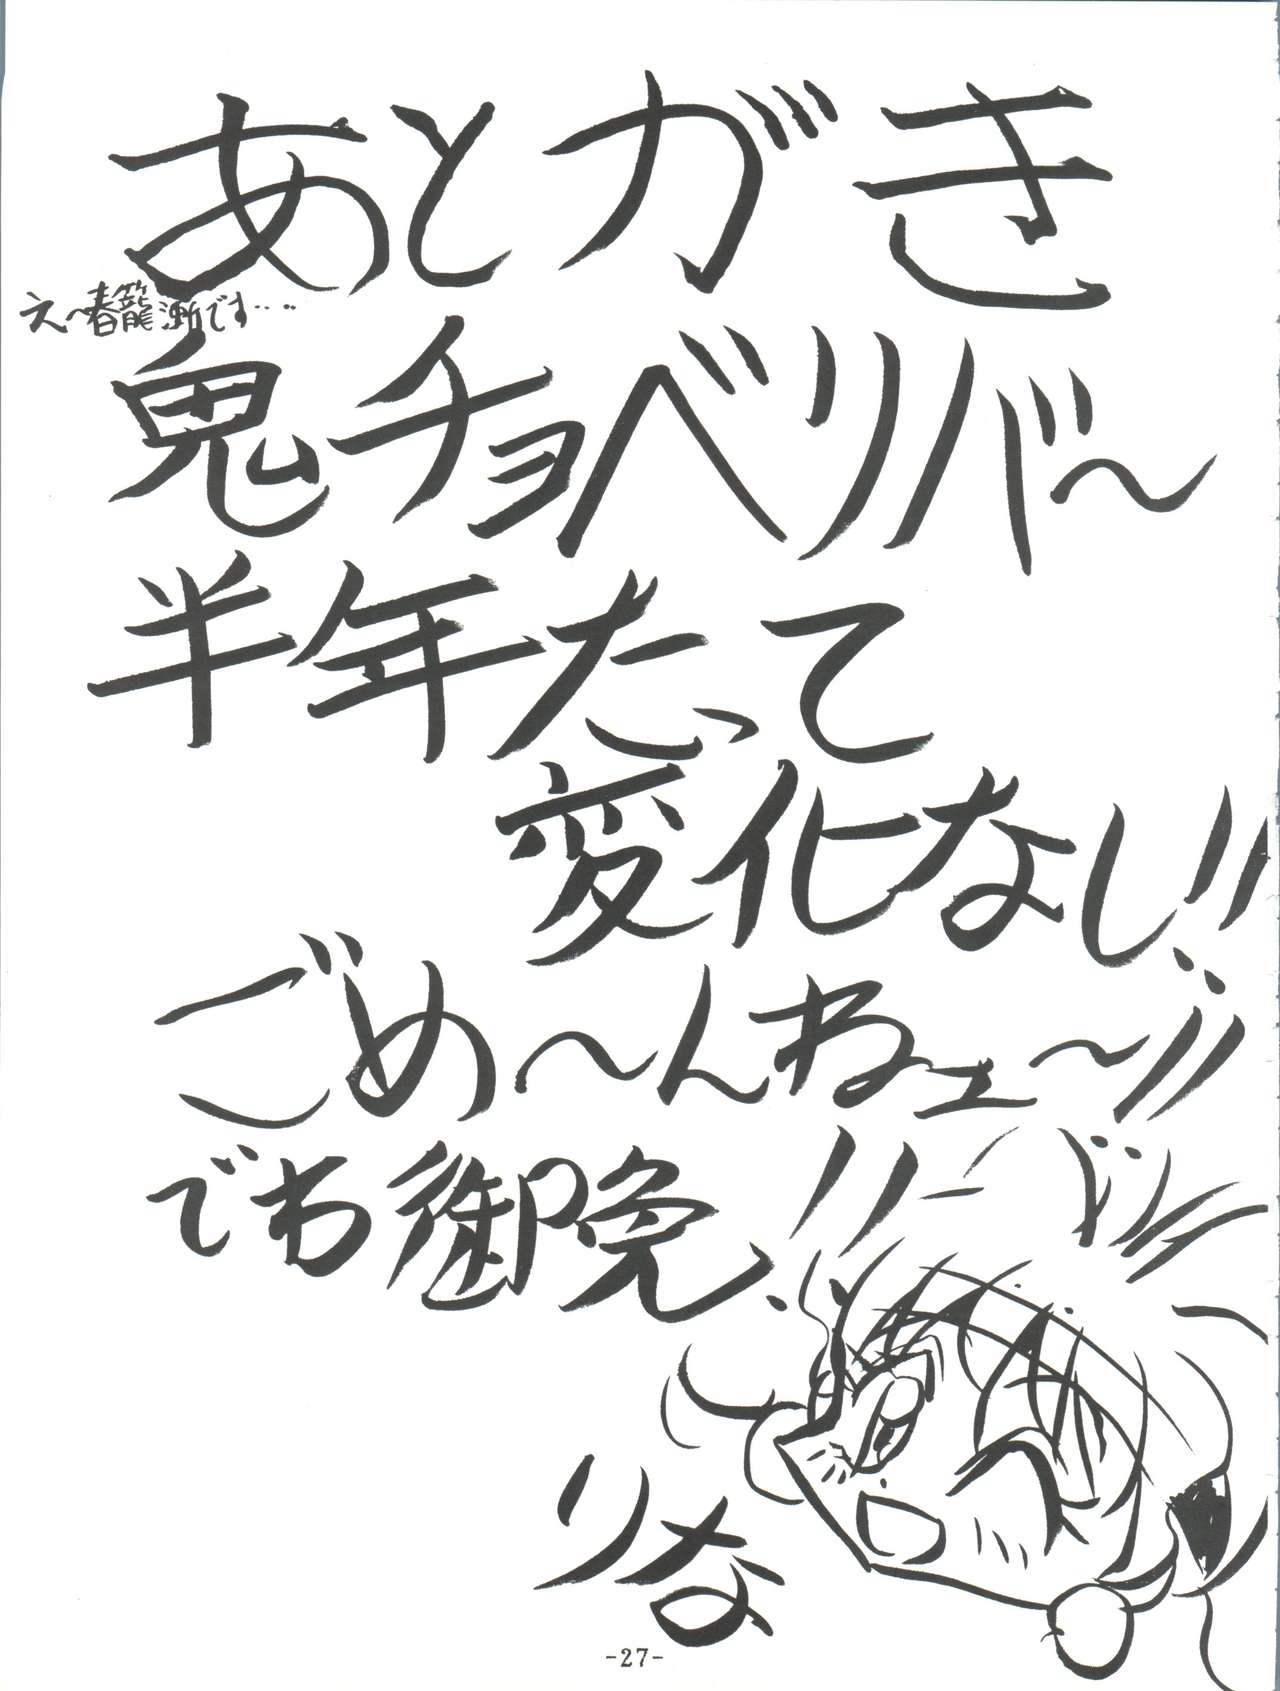 あとがき
え〜春籠漸です…‥
鬼チョベリバ〜
半年たって
変化なし!!
ごめ〜んねェ〜!!
でわ御免!!
ドシテ
りな
-27-